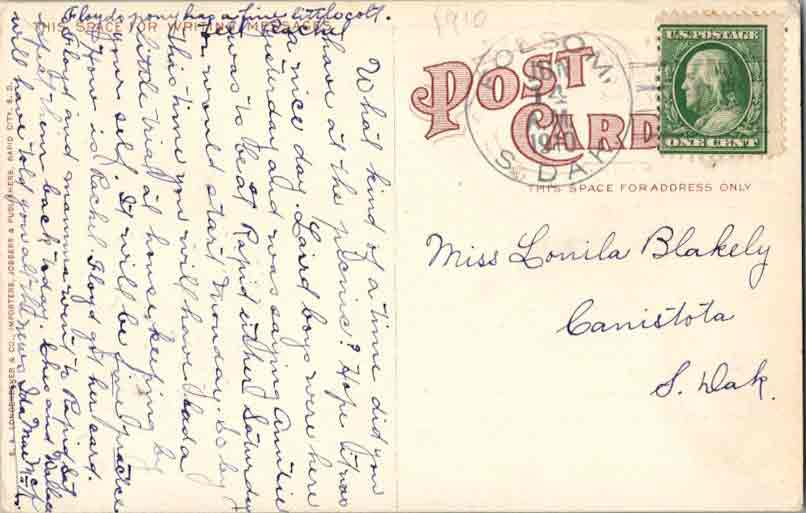 Floyds pony has a fine little colt.
THIS SPACE FOR WRITING MESSAGES
Tell Rachel
What kind of a time did you
have at the picnic? Hope it was
a nice day. Laird boys were here
yesterday and was saying Auntie
was to be at Rapid either Saturday
or would start Monday. So by
this time you will have had a
little trial at housekeeping by
your self. It will be fine practice
How is Rachel Floyd got her card.
Floyd and mamma went to Rapid Sat
them back today. and Wallace
will have told you all the news Ida Mae
S. A. LONGENECKER & CO., IMPORTERS, JOBBERS & PUBLISHERS, RAPID CITY, S. D.
1910
POST CARD
FOLSOM,
14
1910
S. DAK.
U.S. POSTAGE
ONE CENT
THIS SPACE FOR ADDRESS ONLY
Miss Lonila Blakely
Canistota
S. Dak.